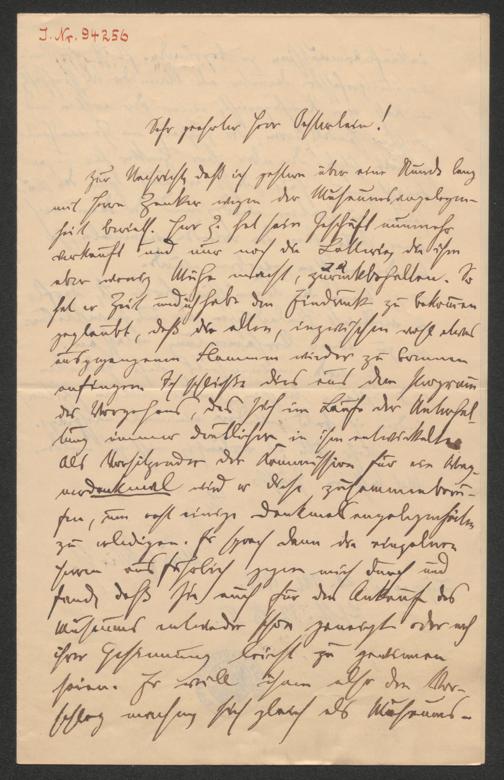 J. Nr. 94256
Sehr geehrter Herr Oesterlein!
Zur Nachricht, daß ich gestern über eine Stunde lang
mit Herrn Zenker wegen der Museumsangelegen-
heit beriet. Herr Z. hat sein Geschäft nunmehr
verkauft und nur noch die die ihm
aber wenig Mühe macht, zurückbehalten. So
hat er Zeit und ich habe den Eindruck zu bekommen
geglaubt, daß die alten, inzwischen wohl etwas
ausgegangenen Flammen wieder zu brennen
anfingen. Ich schließe dies aus dem Programm
des Vorgehens, das sich im Laufe der Unterhal-
tung immer deutlicher in ihm entwickelte.
Als Vorsitzender der Kommission für ein Wag-
nerdenkmal wird er diese zusammenberu-
fen, um erst einige Denkmalsangelegenheiten
zu erledigen. Er sprach dann die einzelnen
Herren ausführlich gegen mich durch und
fand, daß sie auch für den Ankauf des
Museums entweder schon geneigt oder nach
ihrer Gesinnung leicht zu gewinnen
seien. Er will ihnen also den Vor-
schlag machen, sich gleich als Museums-